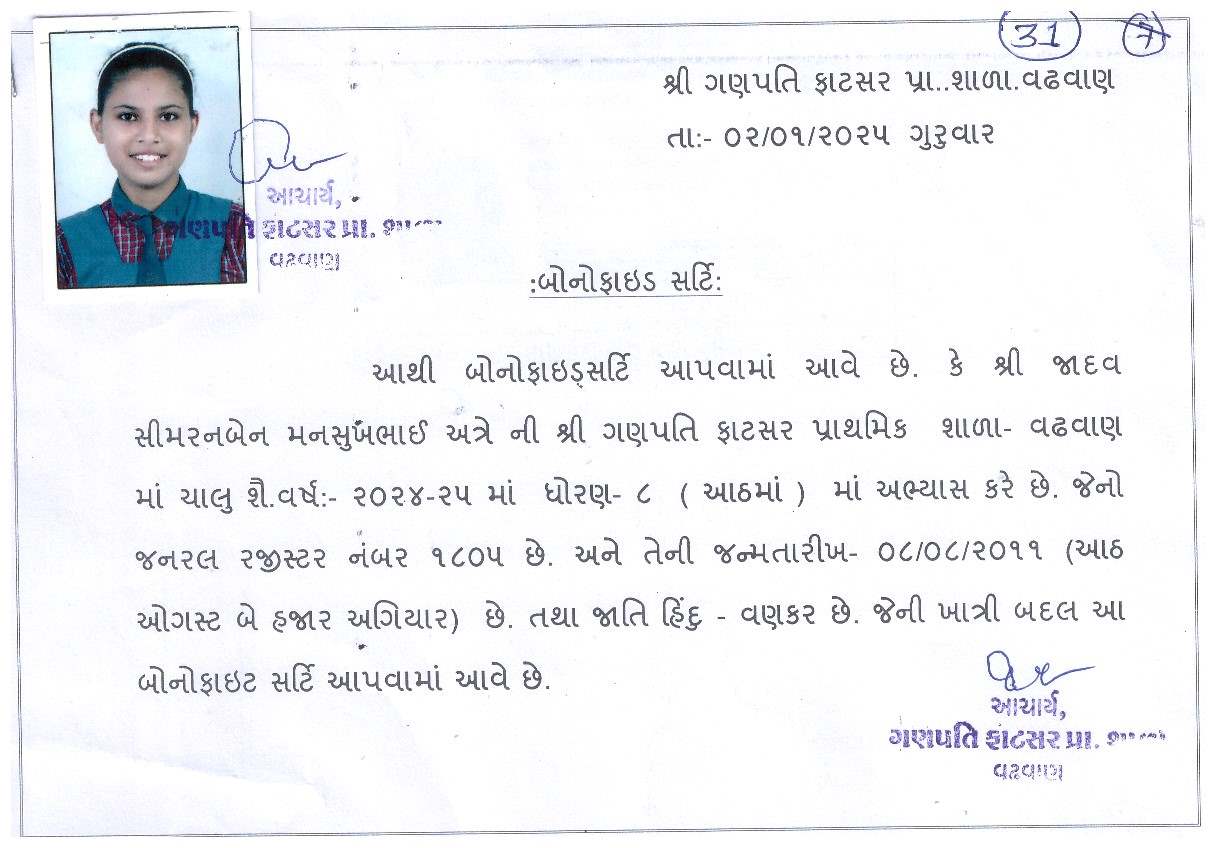 31 7
શ્રી ગણપતિ ફાટસર પ્રા..શાળા.વઢવાણ
તા:- ૦૨/૦૧/૨૦૨૫ ગુરુવાર
આચાર્ય,
ગણપતિ ફાટસર પ્રા.
વઢવાણ
:બોનોફાઇડ સર્ટિ:
આથી બોનોફાઇડ્સર્ટિ આપવામાં આવે છે. કે શ્રી જાદવ
સીમરનબેન મનસુખભાઈ અત્રે ની શ્રી ગણપતિ ફાટસર પ્રાથમિક શાળા- વઢવાણ
માં ચાલુ શૈ.વર્ષ:- ૨૦૨૪-૨૫ માં ધોરણ- ૮ ( આઠમાં ) માં અભ્યાસ કરે છે. જેનો
જનરલ રજીસ્ટર નંબર ૧૮૦૫ છે. અને તેની જન્મતારીખ- ૦૮/૦૮/૨૦૧૧ (આઠ
ઓગસ્ટ બે હજાર અગિયાર) છે. તથા જાતિ હિંદુ - વણકર છે. જેની ખાત્રી બદલ આ
બોનોફાઇટ સર્ટિ આપવામાં આવે છે.
આચાર્ય,
ગણપતિ ફાટસર પ્રા.
વઢવાણ